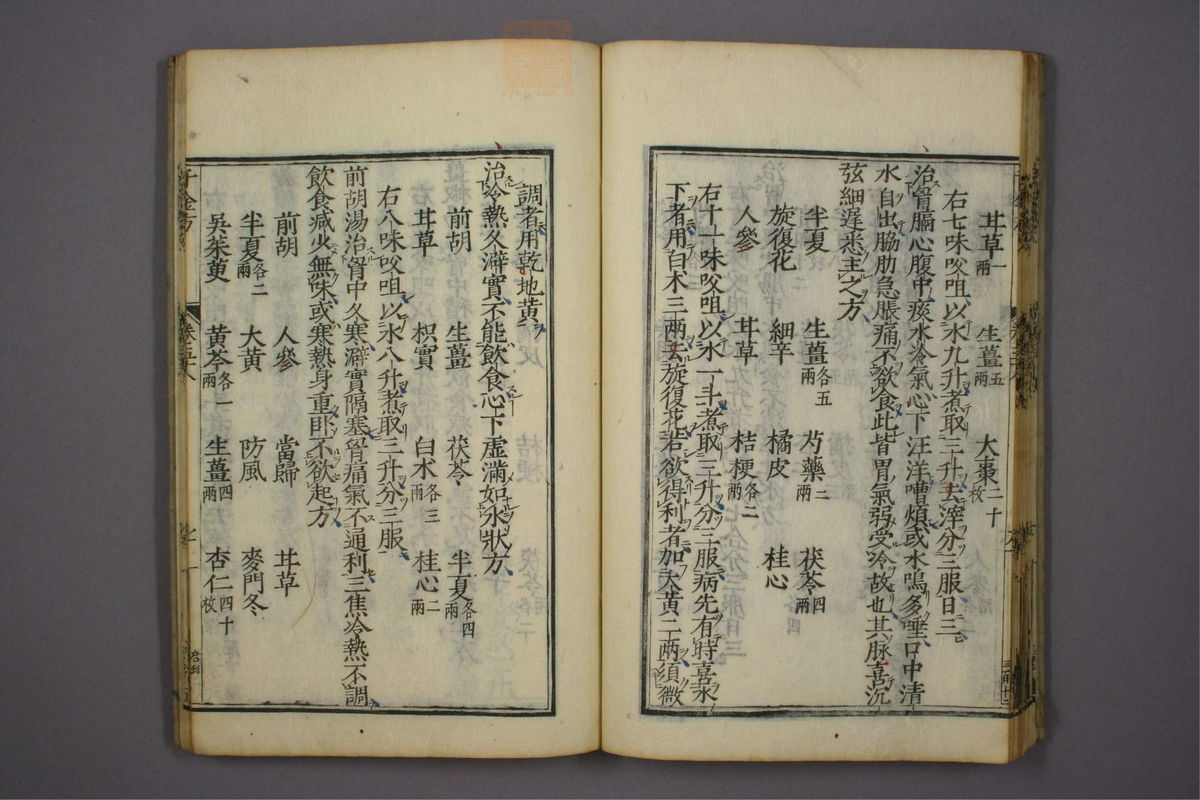 甘草一兩 生薑五兩 大棗二十枚
右七味㕮咀以水九升煮取三升去滓分三服日三
治胷膈心腹中痰水冷氣心下汪洋嘈煩或水鳴多唾口中清
水自出脇肋急脹痛不欲食此皆胃氣弱受冷故也其脉喜沉
弦細遲悉主之方
半夏 生薑各五兩 芍藥二兩 茯苓四兩
旋復花 細辛 橘皮 桂心
人參 甘草 桔梗各二兩
右十一味㕮咀以水一斗煮取三升分三服病先有時喜水
下者用白术三兩去旋復花若欲得利者加大黃二兩須微
調者用乾地黃
治冷熱久澼實不能飲食心下虛滿如水狀方
前胡 生薑 茯苓 半夏各四兩
甘草 枳實 白术各三兩 桂心二兩
右八味㕮咀以水八升煮取三升分三服
前胡湯治胷中久寒澼實隔塞胷痛氣不通利三焦冷熱不調
飲食減少無味或寒熱身重卧不欲起方
前胡 人參 當歸 甘草
半夏各二兩 大黃 防風 麥門冬
吳茱萸 黃芩各一兩 生薑四兩 杏仁四十枚
千金方 卷五十八